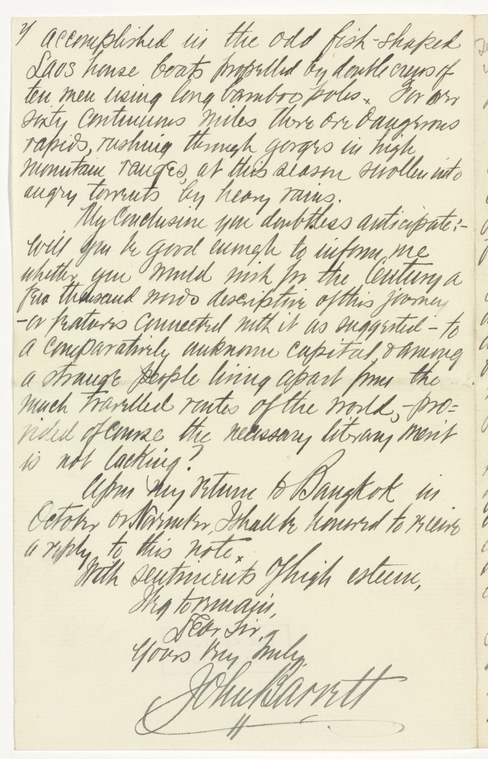 2/ accomplished in the odd fish-shaped
Laos house boats propelled by double crews of
ten men using long bamboo poles. For over
sixty continuous miles there are dangerous
rapids, rushing through gorges in high
mountain ranges, at this season swollen into
angry torrents by heavy rains.
My conclusion you doubtless anticipate:-
Will you be good enough to inform me
whether you would wish for the Century a
few thousand words descriptive of this journey
-or features connected with it as suggested - to
a comparatively unknown capital, & among
a strange people living apart from the
much travelled routes of the world, - pro=
vided of course the necessary literary merit
is not lacking?
Upon my return to Bangkok in
October or November, I shall be honored to receive
a reply to this note.
With sentiments of high esteem,
I beg to remain,
Dear Sir,
Yours Very Truly,
John Barrett